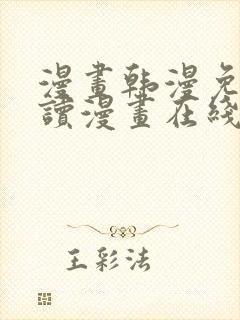 漫畫韩漫免
讀漫畫在綫
王彩法